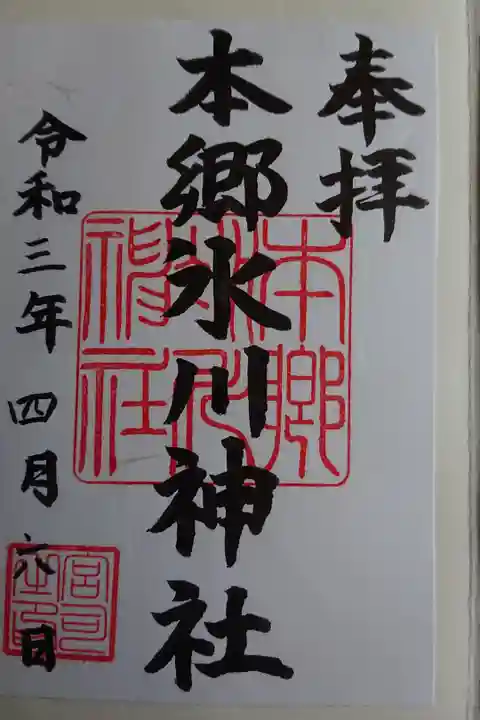 奉拝
本郷氷川神社
令和三年四月六日
本郷
氷川
神社